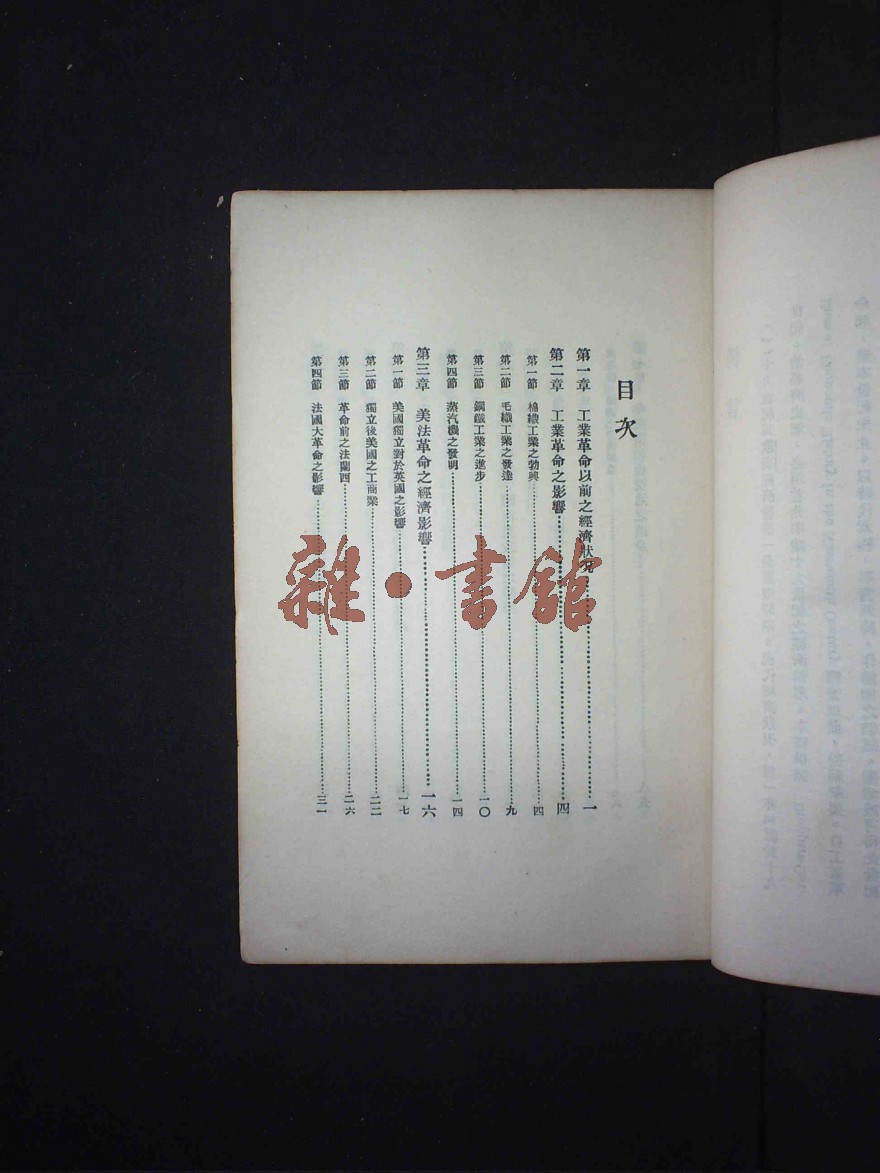 目次
第一章 工業革命以前之經濟狀況 一
第二章 工業革命之影響 四
第一節 棉織工業之勃興 四
第二節 毛織工業之發達 九
第三節 鋼鐵工業之進步 一〇
第四節 蒸汽機之發明 一四
第三章 美法革命之經濟影響 一六
第一節 美國獨立對於英國之影響 一七
第二節 獨立後美國之工商業 二二
第三節 革命前之法蘭西 二六
第四節 法國大革命之影響 三一
雜·書館